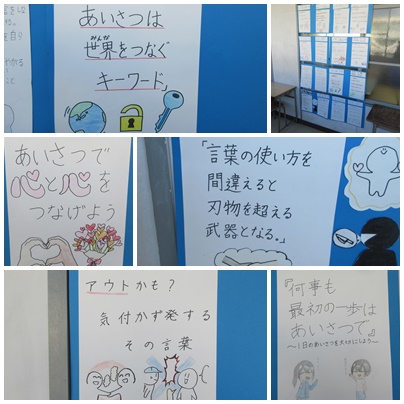 あいさつは
世界をつなぐ
キーワード」
あいさつで
心と心を
つなげよう
「言葉の使い方を
間違えると
刃物を超える
武器となる。」
アウトかも?
気付かず発する
その言葉
『何事も
最初の一歩は
あいさつで』
～1日のあいさつを大切にしよう～